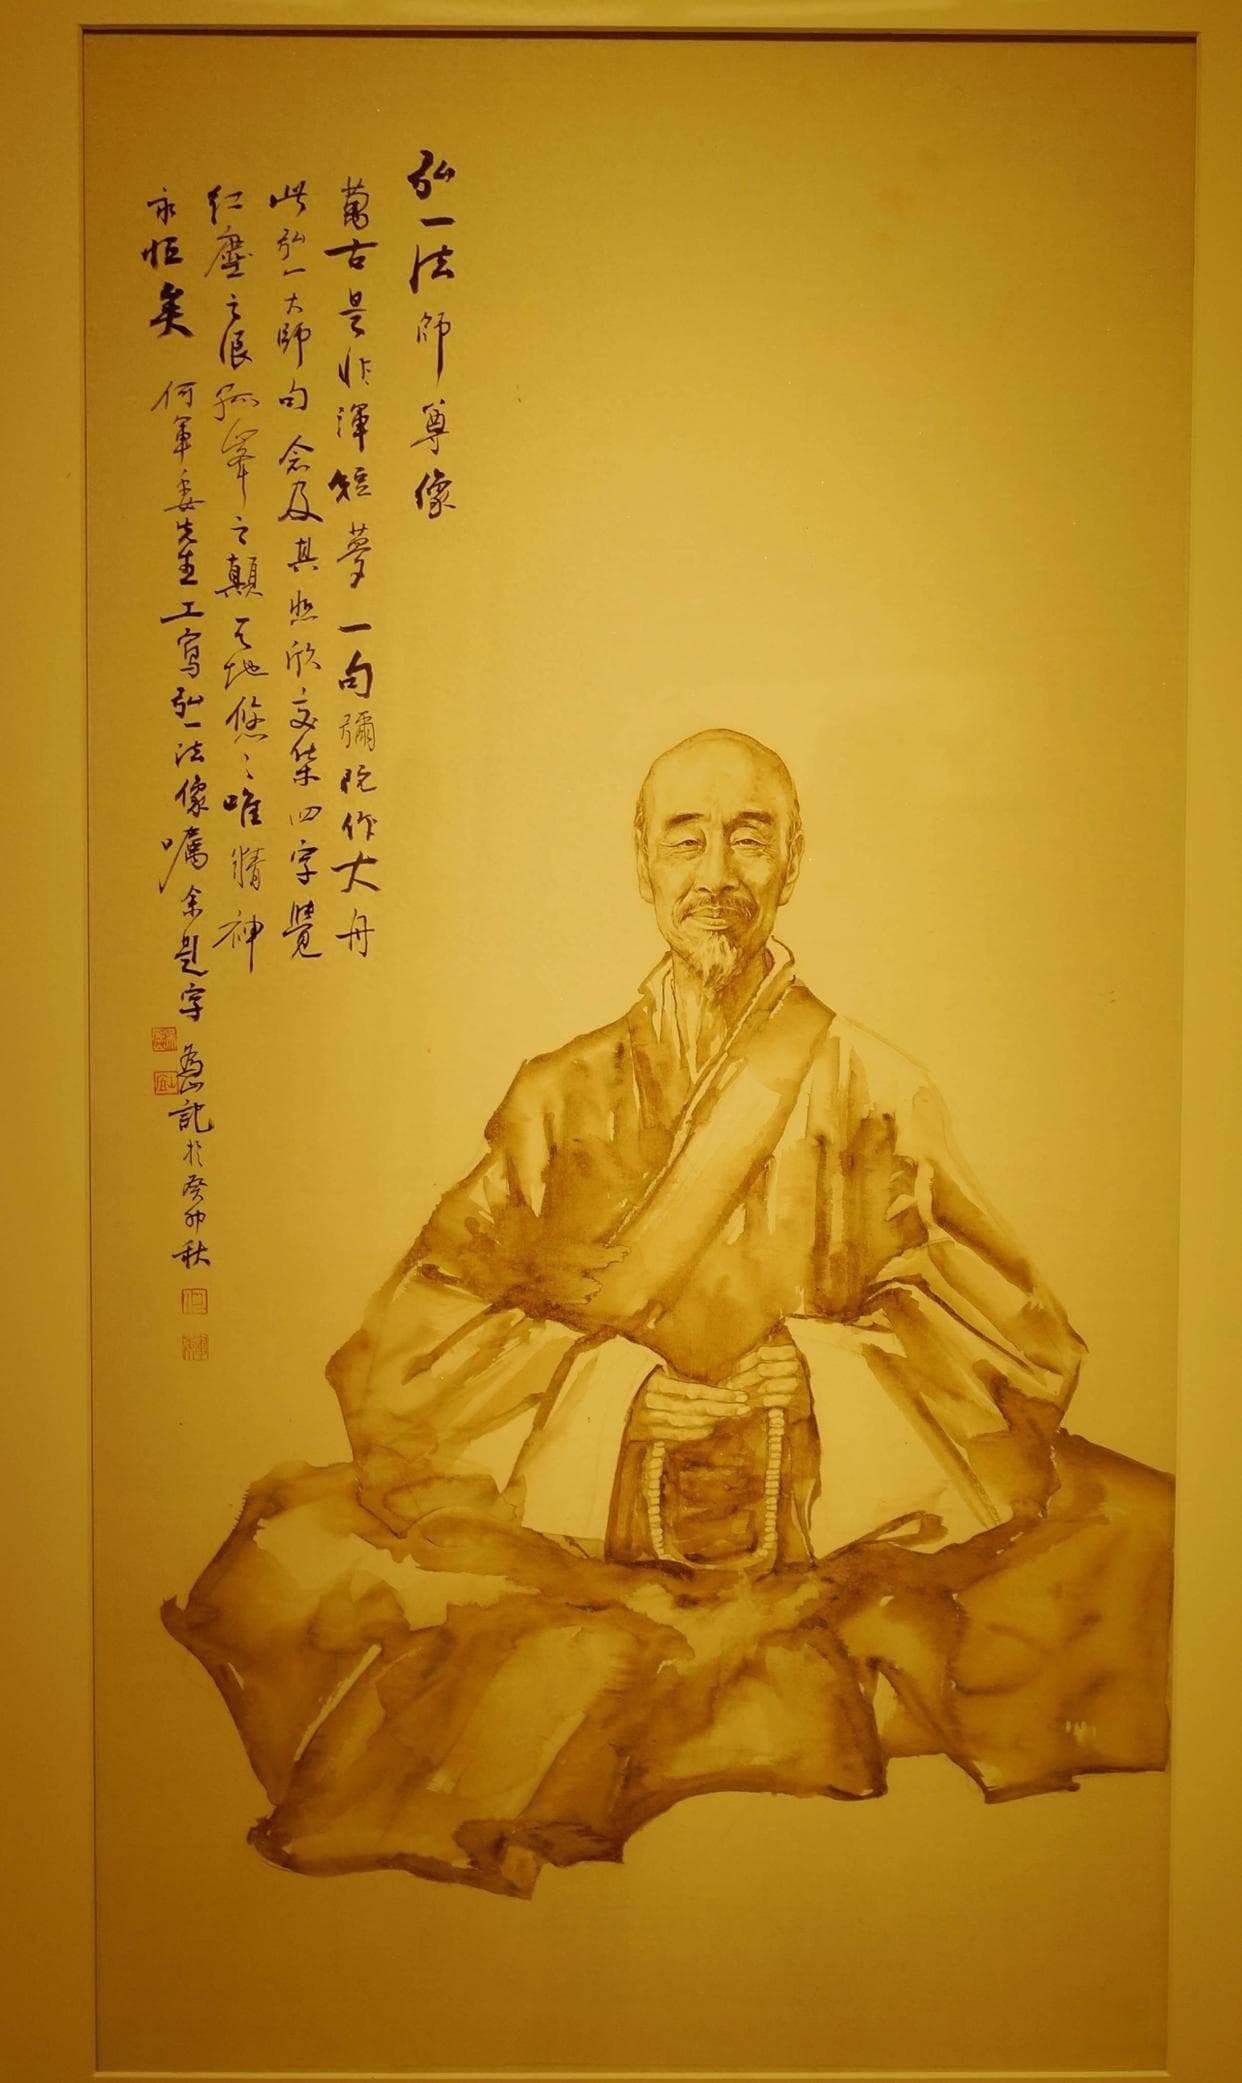 弘一法師尊像
萬古是非渾短夢一句彌陀作大舟
此弘一大師句念及其悲欣交集四字覺
紅塵之浪孤峯之巔天地悠悠唯精神
永恒矣何軍委先生工寫弘一法像囑余題字
為山記於癸卯秋